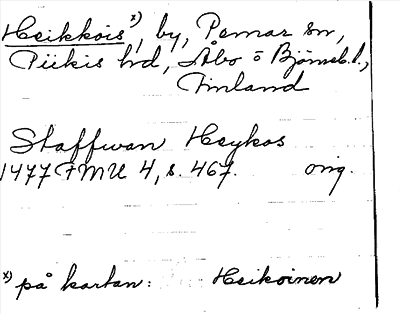 Heikkois x), by, Pemar sn,
Piikis hd, Åbo o Björneb. l.,
Finland
Staffwan Heykos
1477 FMU 4, s. 467. orig.
x) på kartan: Heikoinen